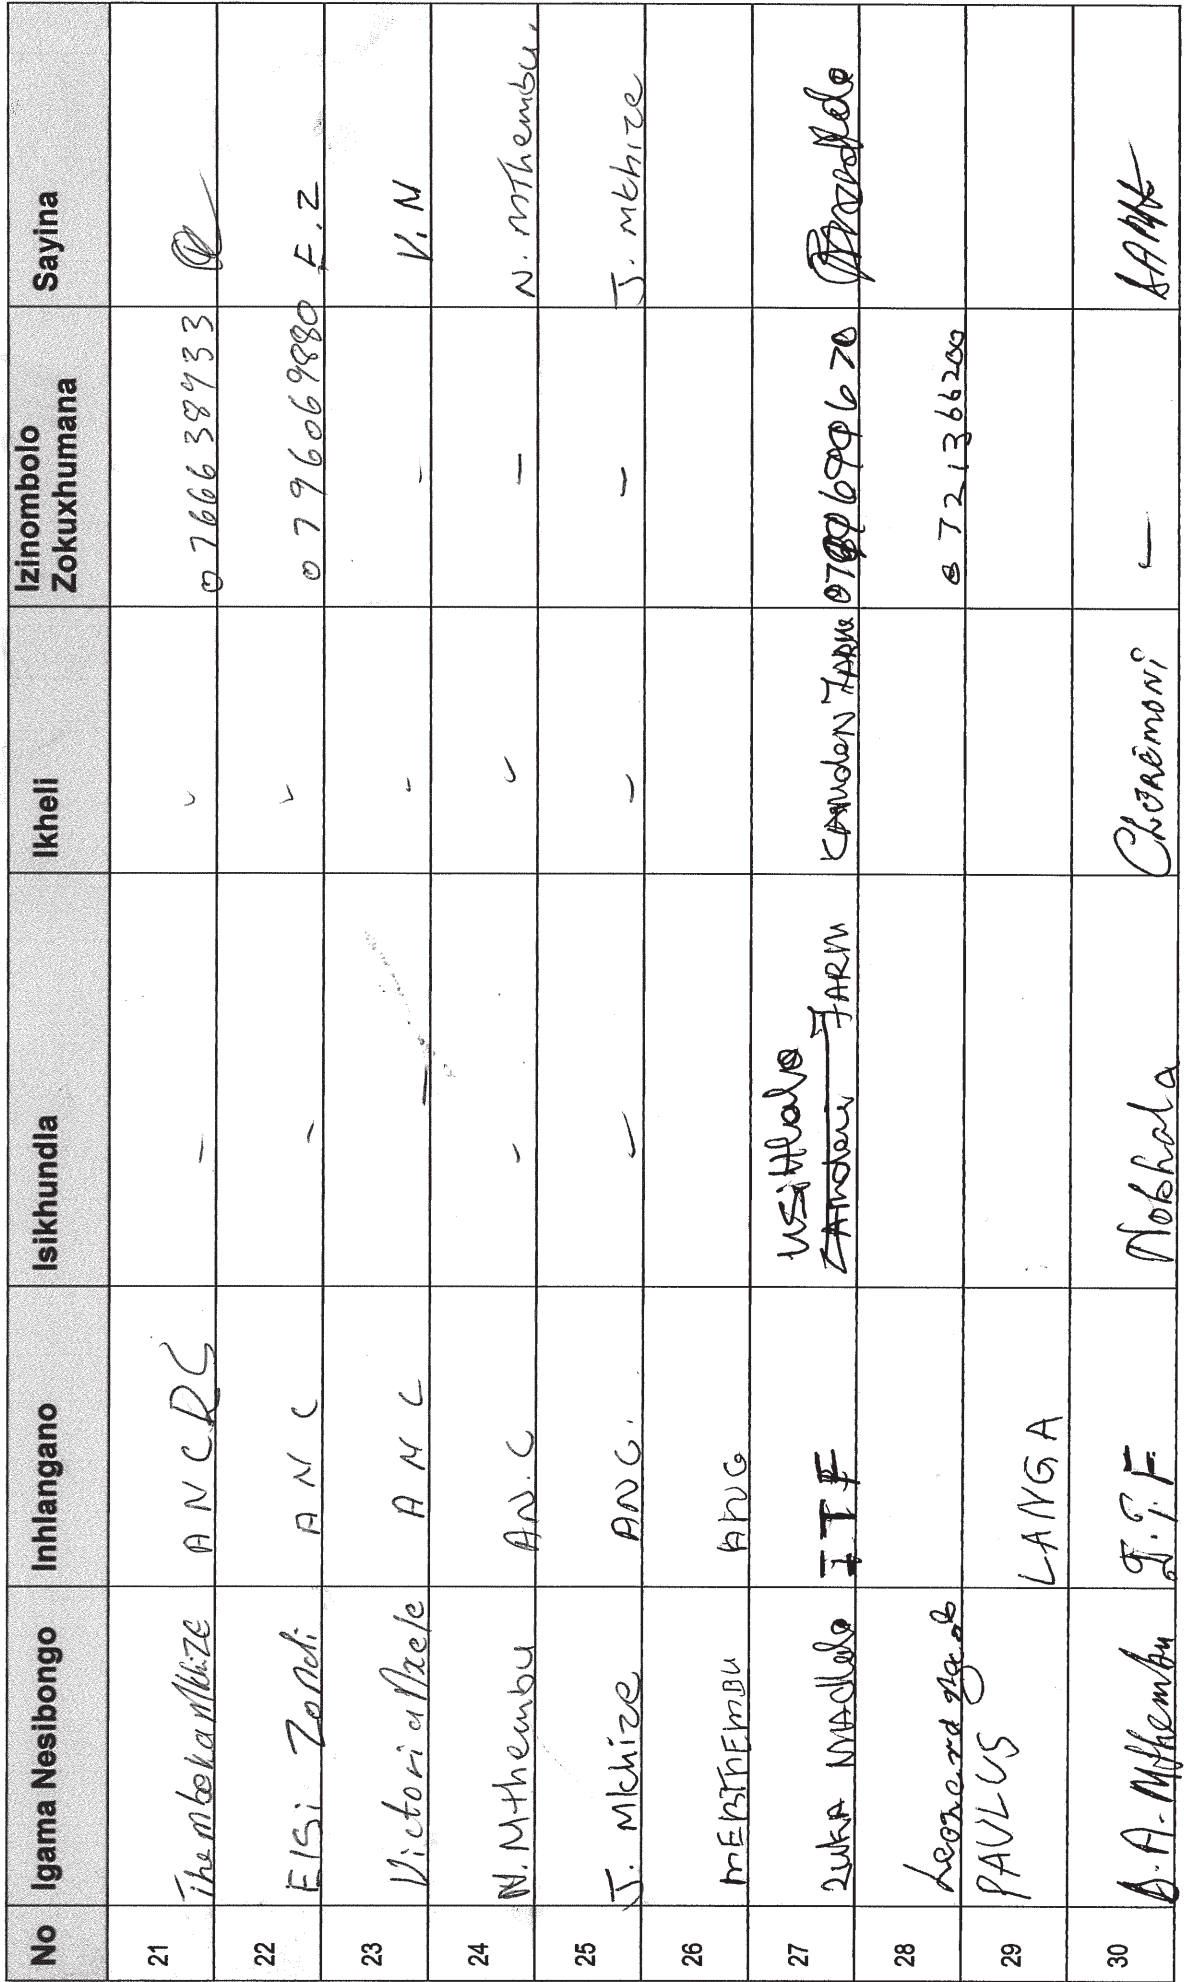 No Igama Nesibongo Inhlangano Isikhundla Ikheli Izinombolo Zokuxhumana Sayina
21 Thembeka Mkhize A N C - ˇ
22 Elsi Zondi A N C - ˇ 0796069880 E.Z
23 Victoria Nxele A N C - - - V.N
24 N. Mthembu AN.C - ˇ - N. MThembu.
25 J. Mkhize ANC. - - - J. Mkhize
26 ANC
27 ZUKA I T F USihlalo FARM CAMDEN FARM
28 Leonard 0721366200
29 PAULUS LANGA
30 B.A. Mthembu I.T.F Nobhala -